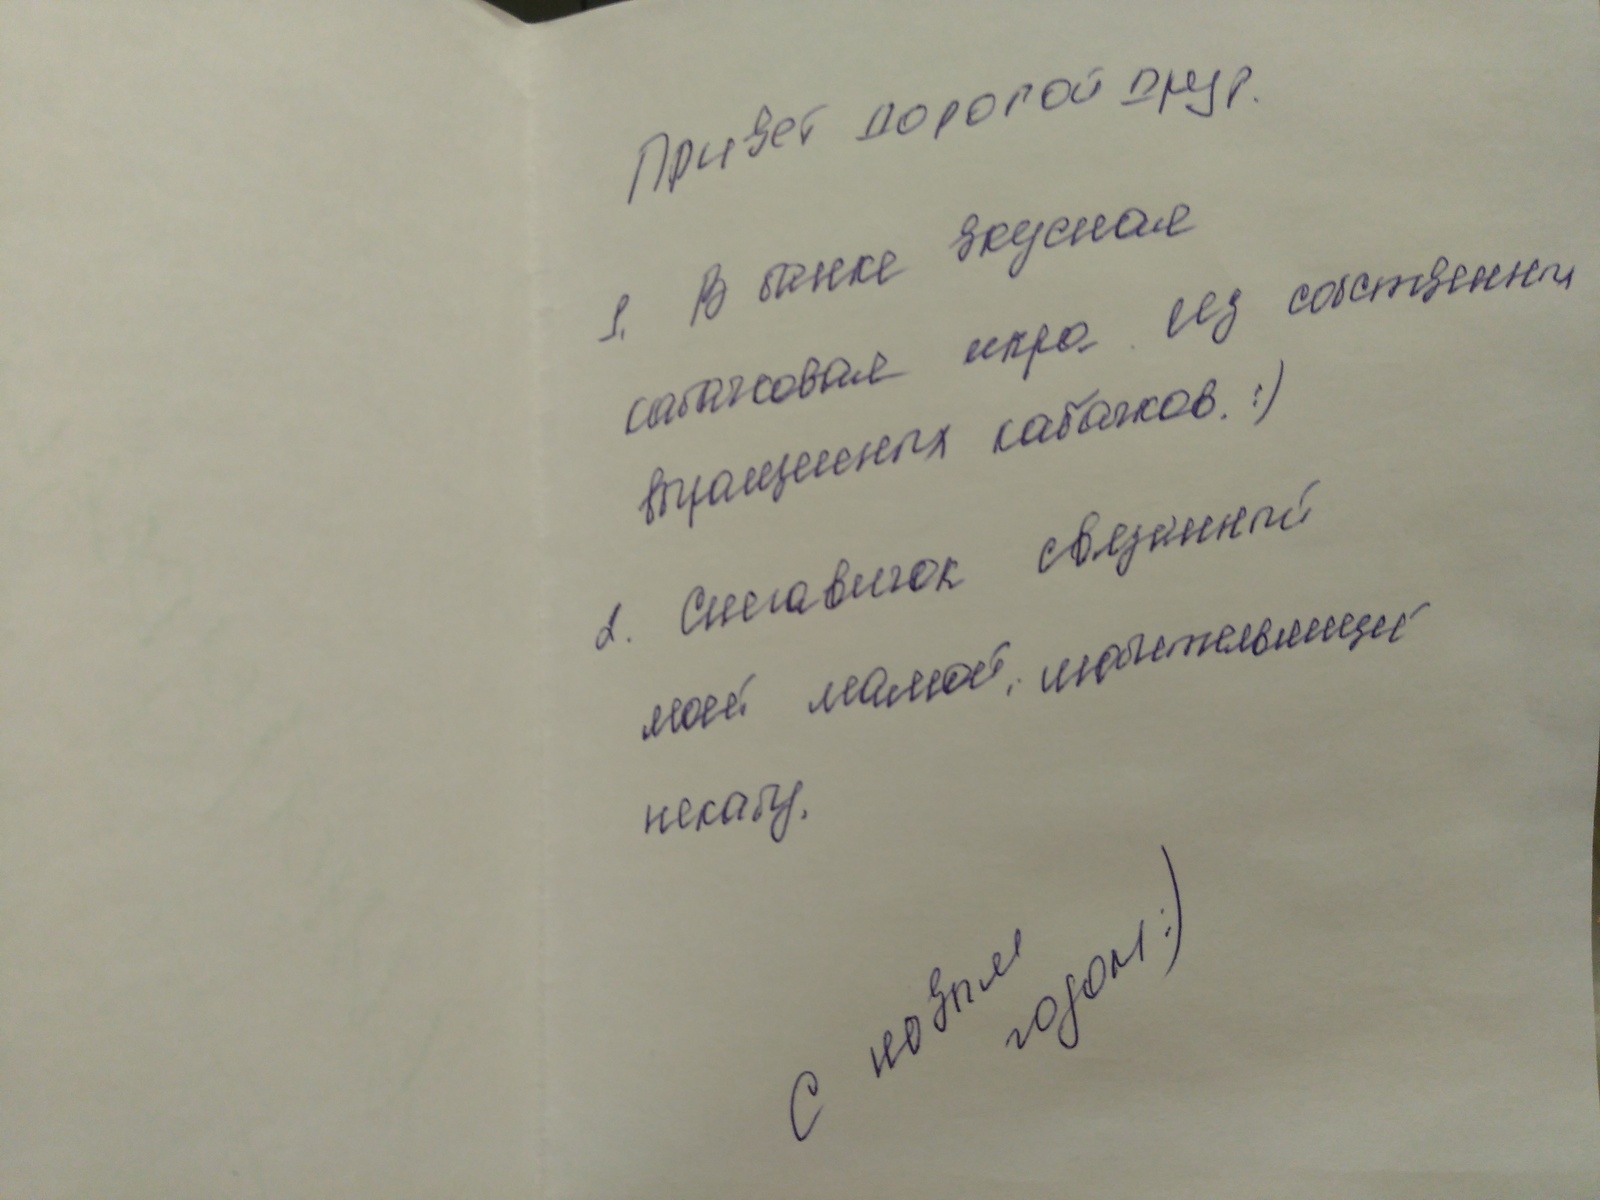 Привет дорогой друг.
1. В банке вкусная
кабачковая икра из собственно
выращенных кабачков. :)
2. Снеговичок связанный
моей мамой,
С новым
годом :)